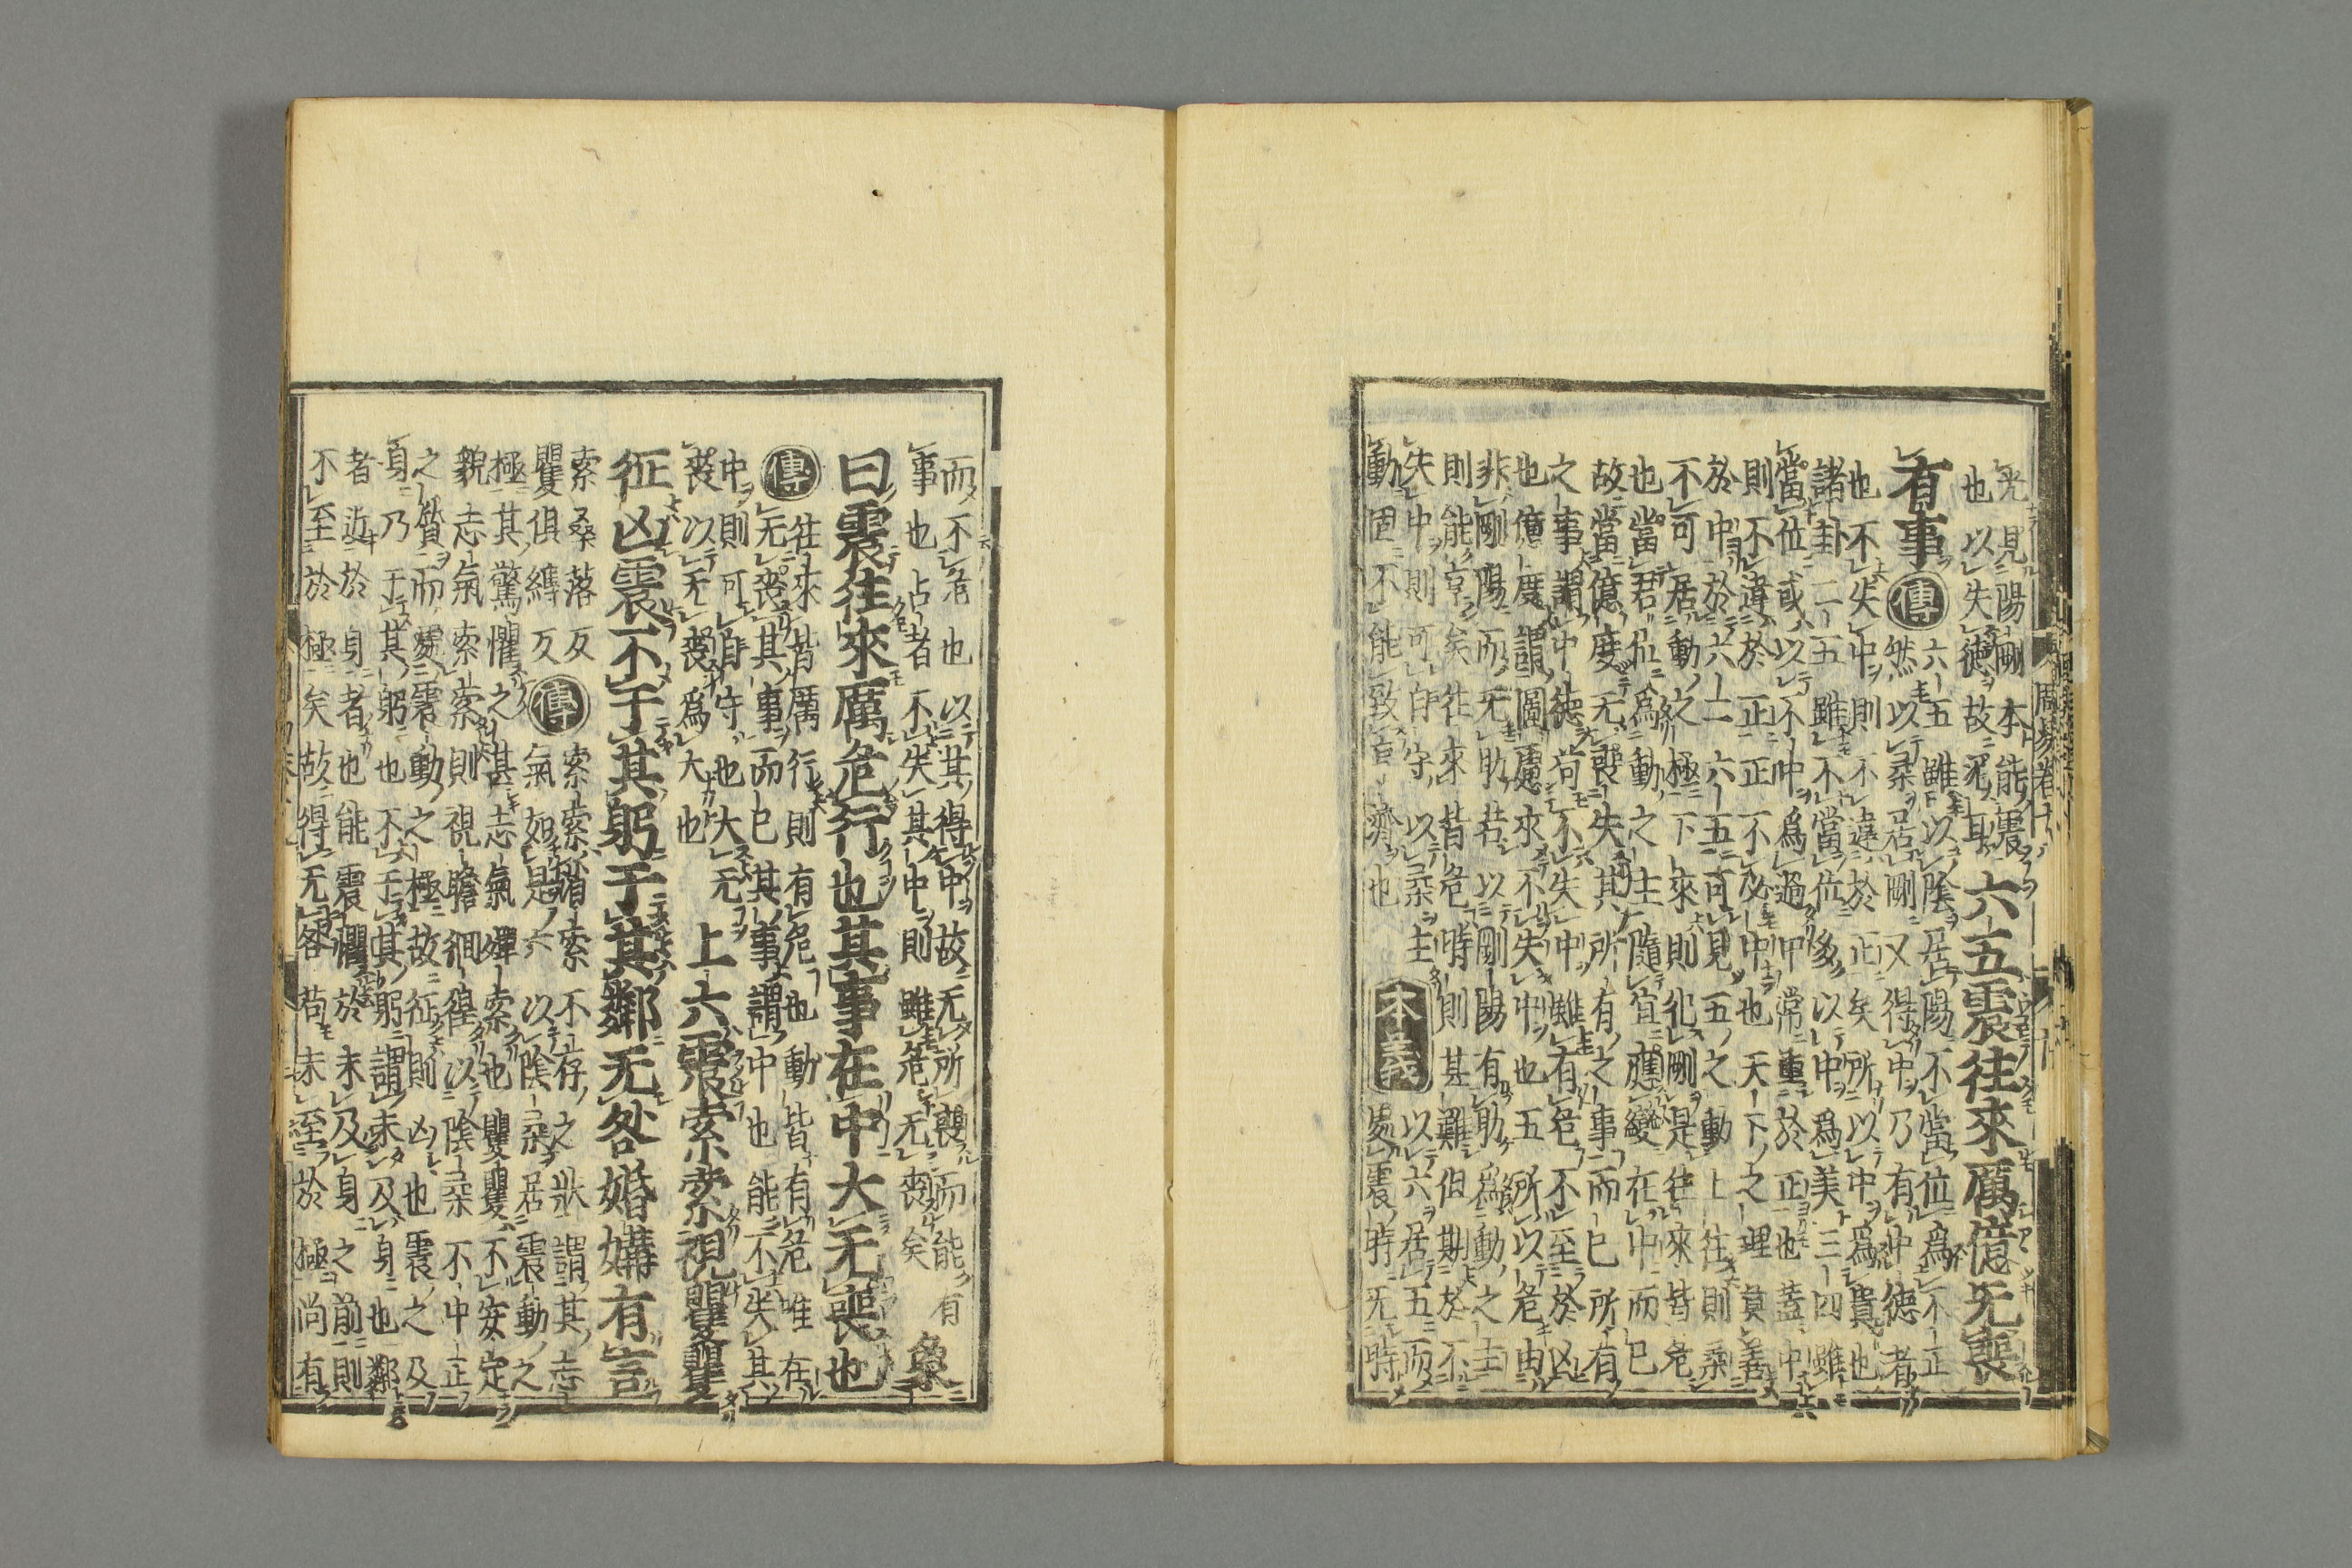 光見陽剛本能震
也以失徳故泥耳
六五震往來厲億无喪
有事
傳
六五雖以陰居陽不當位爲不正
然以柔居剛又得中乃有中徳者
也不失中則不違於正矣所以中爲貴也
諸卦二五雖不當位多以中爲美三四雖
當位或以不中爲過中常重於正也蓋中
則不違於正正不必中也天下之理莫善
於中於六二六五可見五之動上往則柔
不可居動之極下來則犯剛是往來皆危
也當君位爲動之主隨宜應變在中而已
故當億度无喪失其所有之事而已所有
之事謂中徳苟不失中雖有危不至於凶
也億度謂圖慮求不失中也五所以危由
非剛陽而无助若以剛陽有助爲動之主
則能亨矣往來皆危時則甚難但期於不
失中則可自守以柔主
動固不能致亨濟也
本義
以六居五而
處震時无時
而不危也以其得中故无所喪而能有
事也占者不失其中則雖危无喪矣
象
曰震往來厲危行也其事在中大无喪也
傳
往來皆厲行則有危也動皆有危唯在
无喪其事而已其事謂中也能不失其
中則可自守也大无
喪以无喪爲大也
上六震索索視矍矍
征凶震不于其躬于其鄰无咎婚媾有言
索桑落反
矍俱縛反
傳
索索消索不存之狀謂其志
氣如是六以陰柔居震動之
極其驚懼之甚志氣殫索也矍矍不安定
貌志氣索索則視瞻徊徨以陰柔不中正
之質而處震動之極故征則凶也震之及
身乃于其躬也不于其躬謂未及身也鄰
者近於身者也能震懼於未及身之前則
不至於極矣故得无咎苟未至於極尚有